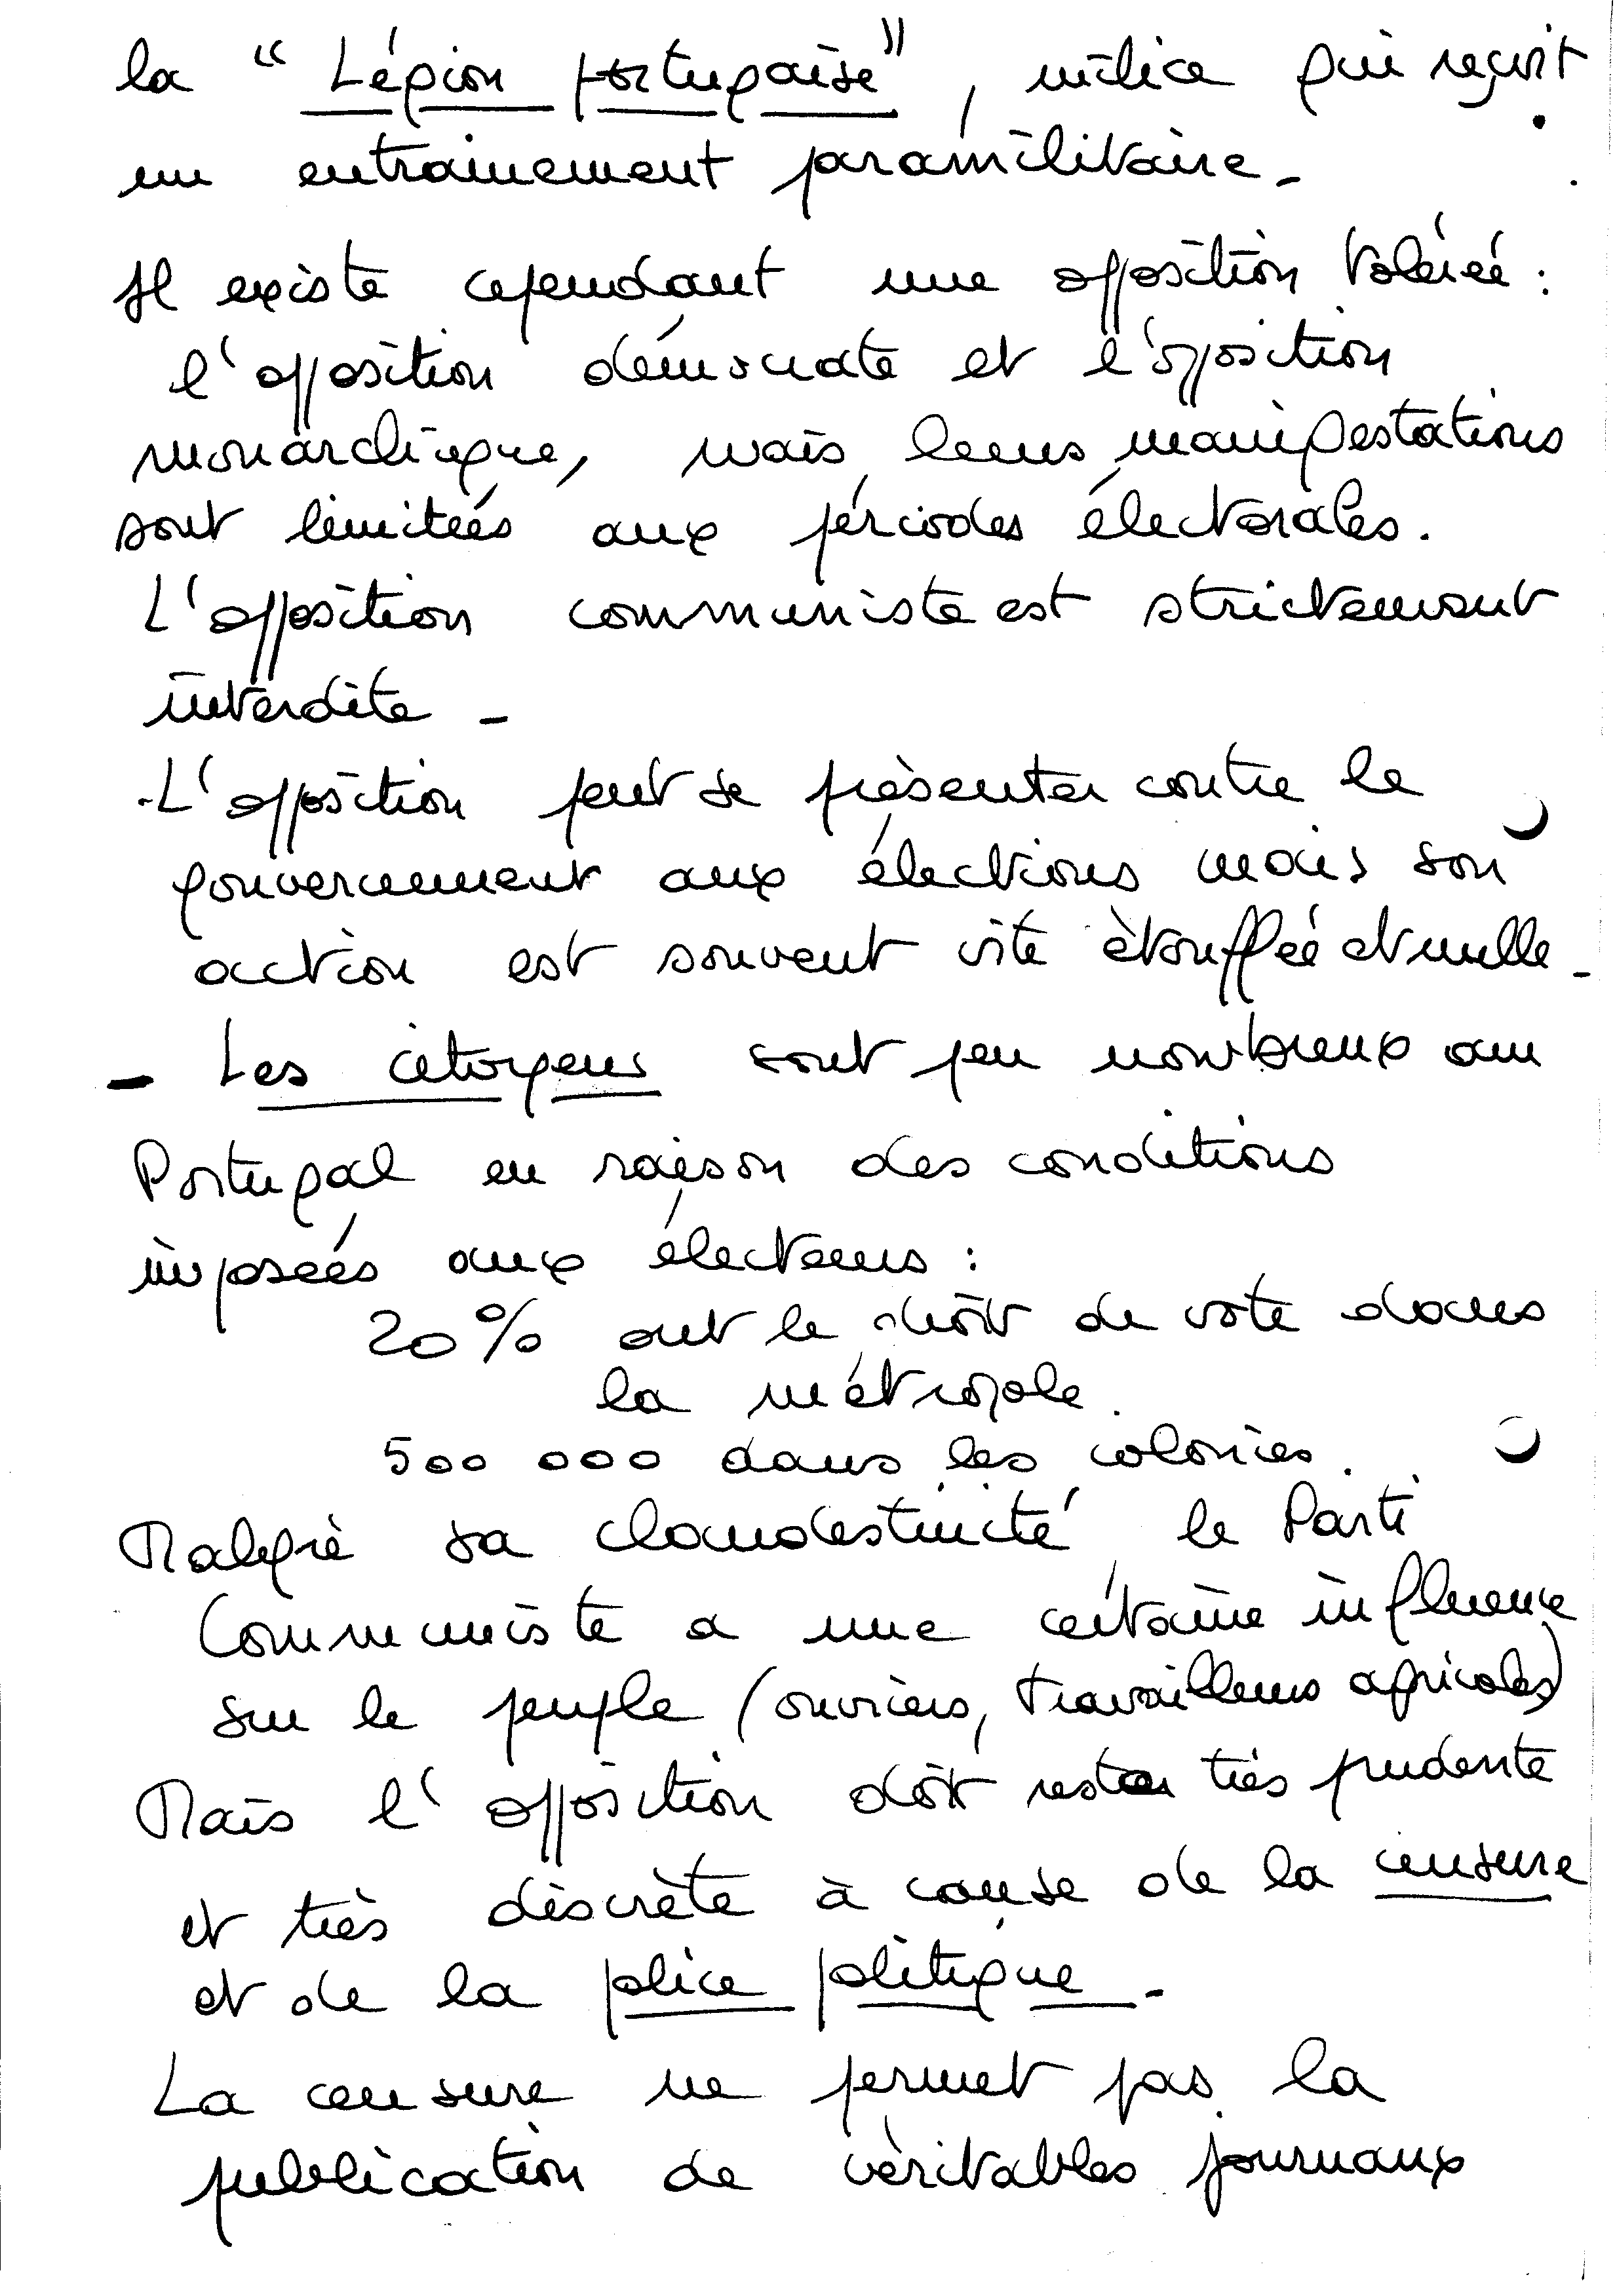 la "Légion portugaise", milice qui reçoit
un entrainement paramilitaire -
Il existe cependant une opposition tolérée :
l'opposition démocrate et l'opposition
monarchique, mais leurs manifestations
sont limitées aux périodes électorales.
L'opposition communiste est strictement
interdite -
- L'opposition peut se présenter contre le
gouvernement aux élections mais son
action est souvent vite étouffée et nulle -
- Les citoyens sont peu nombreux au
Portugal en raison des conditions
imposées aux électeurs :
20% ont le droit de vote dans
la métropole.
500 000 dans les colonies.
Malgré sa clandestinité, le Parti
Communiste a une certaine influence
sur le peuple (ouvriers, travailleurs agricoles)
Mais l'opposition doit rester très prudente
et très discrète à cause de la censure
et de la police politique -
La censure ne permet pas la
publication de véritables journaux